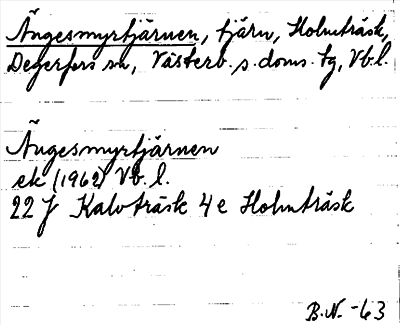 Ängesmyrtjärnen, tjärn, Holmträsk,
Degerfors sn, Västerb. s. doms. tg, Vb. l.
Ängesmyrtjärnen
ek (1962) Vb. l.
22 J Kalvträsk 4 e Holmträsk
B.N. -63